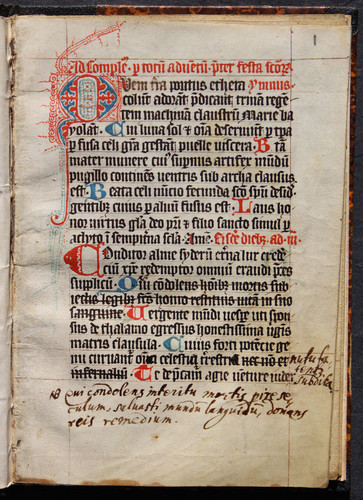 1
Ad Comple. p totu advetu. preter festa scor.
Quem tra pontus ethera Ymnus
colunt adorat predicat trinam rege
tem machinam claustrum Marie ba
iolat. Cui luna sol et oia deserviunt p tpa
p fusa celi gra gestat puelle viscera. Bta
mater munere cui supnus artifex mudu
pugillo continens ventris sub archa clausus
est. Beata celi nucio fecunda sco spu desid
gentibus cuius p alvum fusus est. Laus ho
nor virtus gla deo pri et filio sancto simul p
aclyto i sempitna scla. Ame.
Conditor alme syderu eterna lux crede
ciu xpe redemptor omniu exaudi pces
supplicu. Qui codolens
sanguine. Vergente mudi vespe uti spon
sus de thalamo egressus honestissima vginis
matris clausula. Cuius forti potecie ge
nu curvant oia celestia terrestria nec non et
infernaliu. Te depcam agie venture iudex
nutu fa
tentr
subdita
Qui condolens interitu mortis perire se,
culum, salvasti mundu languidu, donans
reis remedium.